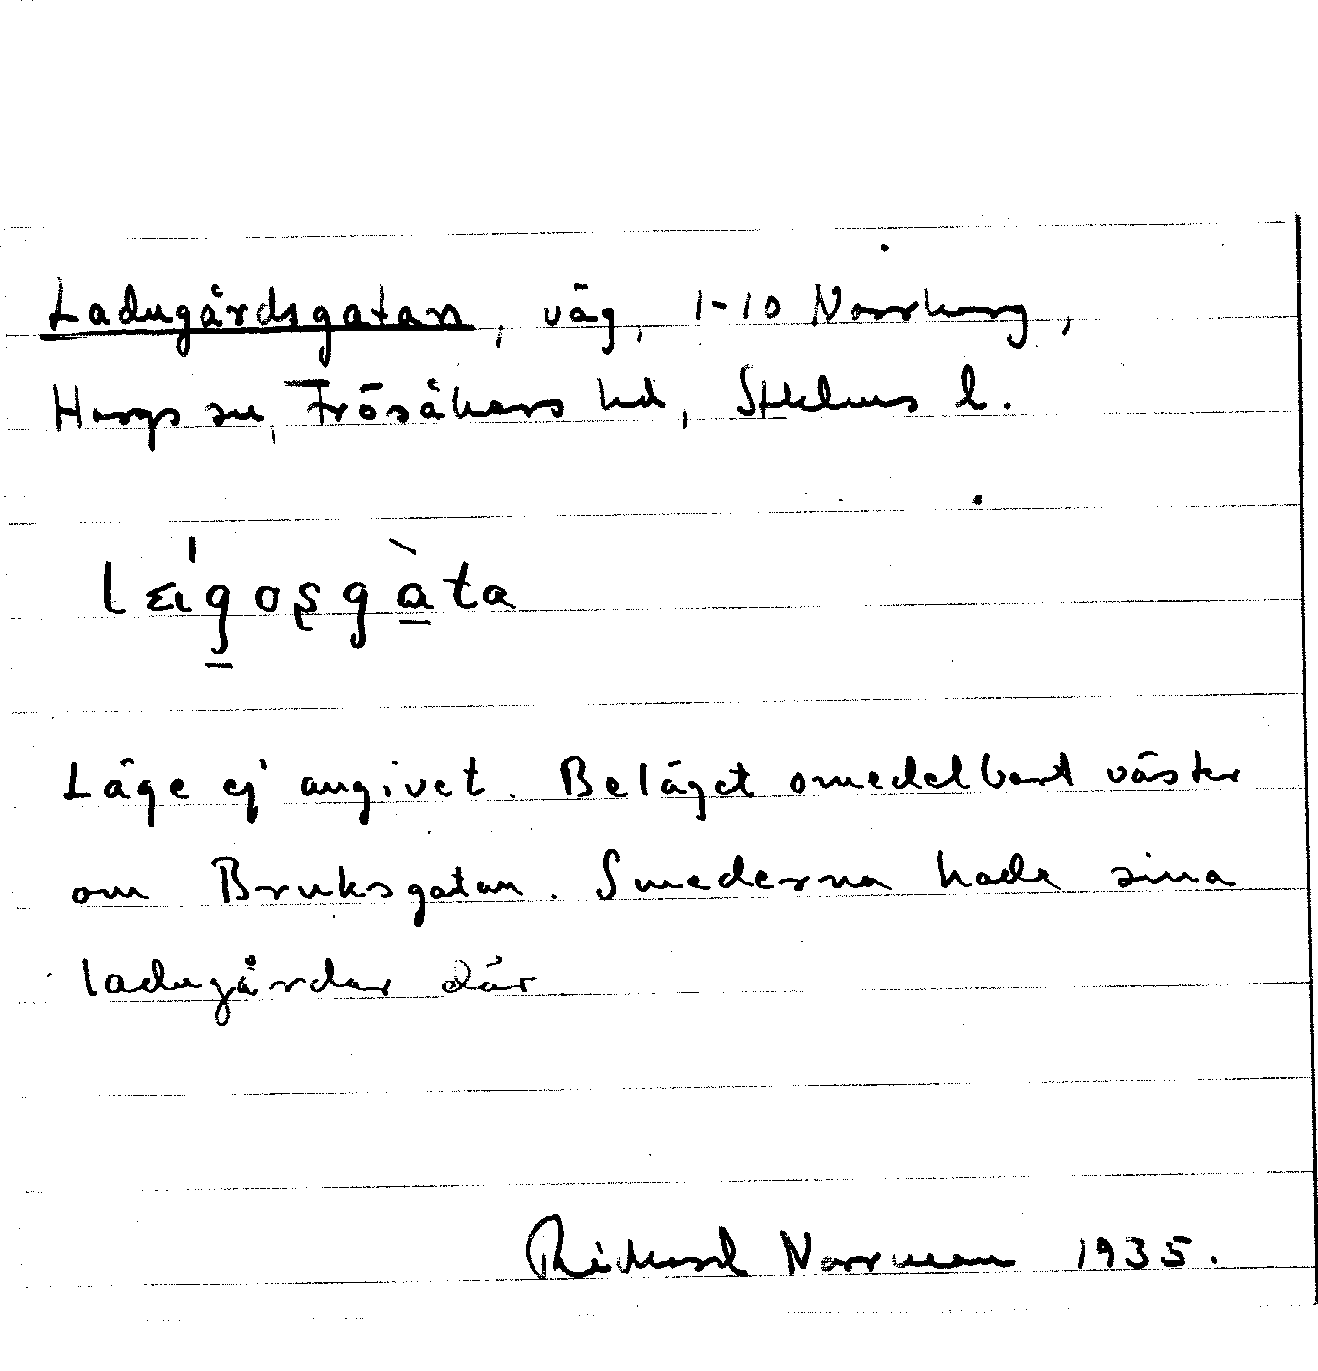 Ladugårdsgatan, väg, 1-10 Norrskog,
Hargs sn, Frösåkers hd, Sthlms l.
Läge ej angivet. Beläget omedelbart väster
om Bruksgatan. Smederna hade sina
ladugårdar där
Richard Norrman 1935.